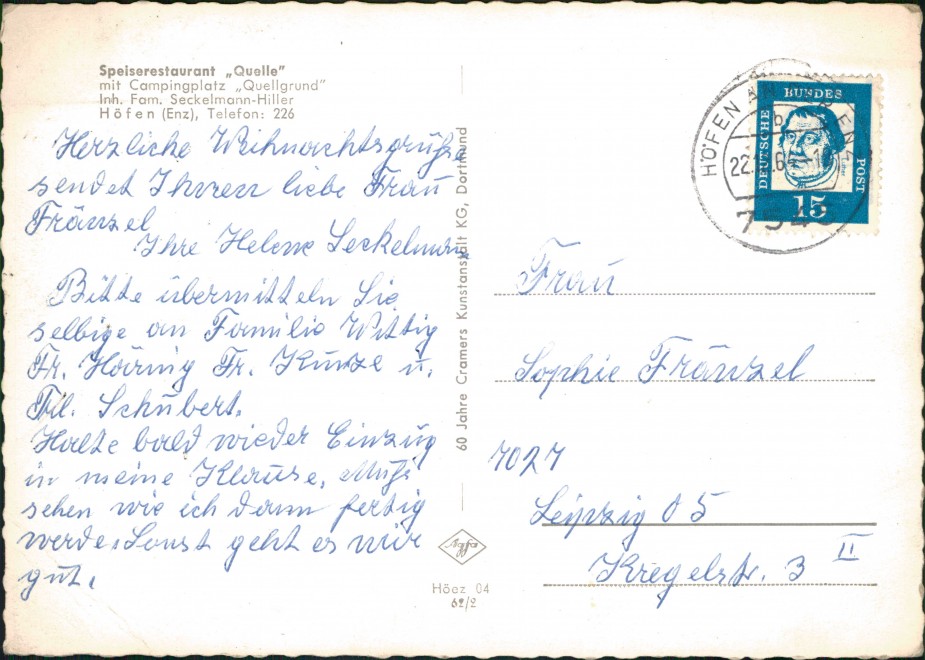 Speiserestaurant „Quelle"
mit Campingplatz „Quellgrund"
Inh. Fam. Seckelmann-Hiller
Höfen (Enz), Telefon: 226
Herzliche Weihnachtsgrüße
sendet Ihnen liebe Frau
Fränzel
Ihre Helene Seckelmann
Bitte übermitteln Sie
selbige an Familie Wittig
Fr. Häring Fr. Kunze u.
Frl. Schubert.
Halte bald wieder Einzug
in meine Klause. Muß
sehen wie ich dann fertig
werde. Sonst geht es mir
gut.
60 Jahre Cramers Kunstanstalt KG, Dortmund
Agfa
Höez 04
62/2
HÖFEN AN DER ENZ
b
22.
DEUTSCHE
BUNDES
POST
Luther
15
Frau
Sophie Fränzel
7027
Leipzig O 5
Kregelstr. 3 II